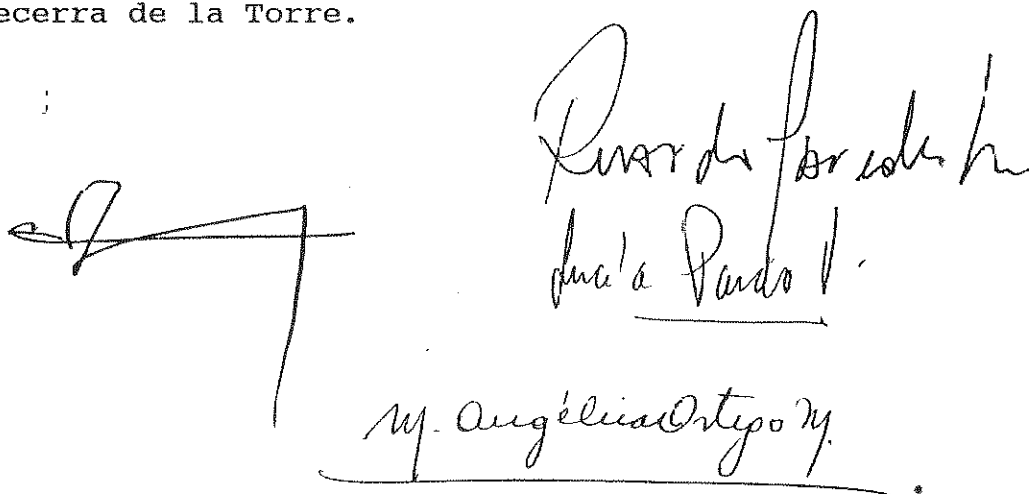 ecerra de la Torre.
Ricardo Paredes
Lucía Pardo V.
M. Angélica Ortego M.